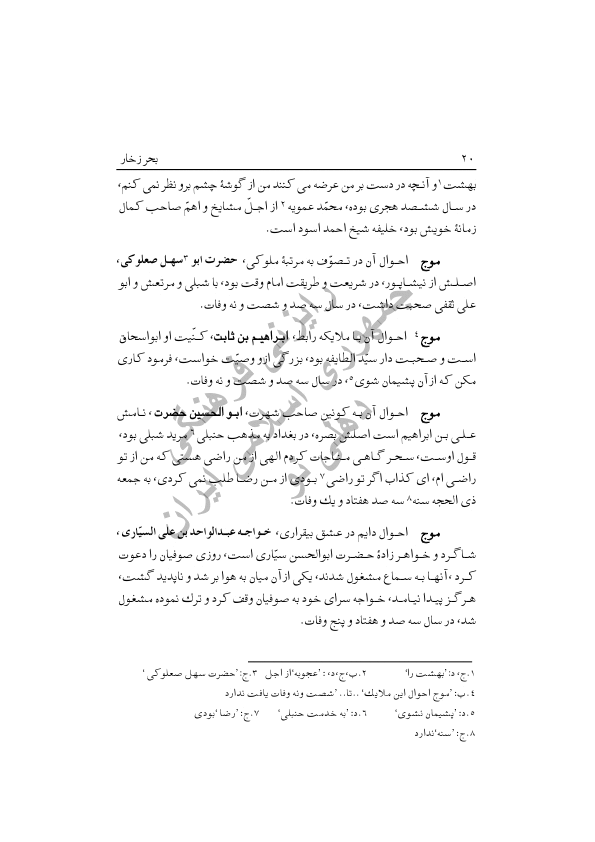 ۲۰ بحر زخار
بهشت۱ و آنچه در دست بر من عرضه می کنند من از گوشۀ چشم برو نظر نمی کنم،
در سال ششصد هجری بوده، محمّد عمویه ۲ از اجلّ مشایخ و اهمّ صاحب کمال
زمانۀ خویش بود، خلیفه شیخ احمد اسود است.
موج احوال آن در تصوّف به مرتبۀ ملوکی، حضرت ابو ۳سهل صعلوکی،
اصلش از نیشاپور، در شریعت و طریقت امام وقت بود، با شبلی و مرتعش و ابو
علی ثقفی صحبت داشت، در سال سه صد و شصت و نه وفات.
موج۴ احوال آن با ملایکه رابط، ابراهیم بن ثابت، کنّیت او ابواسحاق
است و صحبت دار سیّد الطایفه بود، بزرگی ازو وصیّت خواست، فرمود کاری
مکن که از آن پشیمان شوی۵، در سال سه صد و شصت و نه وفات.
موج احوال آن به کونین صاحب شهرت، ابو الحسین حضرت، نامش
علی بن ابراهیم است اصلش بصره، در بغداد به مذهب حنبلی۶ مرید شبلی بود،
قول اوست، سحر گاهی مناجات کردم الهی از من راضی هستی که من از تو
راضی ام، ای کذاب اگر تو راضی۷ بودی از من رضا طلب نمی کردی، به جمعه
ذی الحجه سنه۸ سه صد هفتاد و یك وفات.
موج احوال دایم در عشق بیقراری، خواجه عبدالواحد بن علی السیّاری،
شاگرد و خواهر زادۀ حضرت ابوالحسن سیّاری است، روزی صوفیان را دعوت
کرد ،آنها به سماع مشغول شدند، یکی از آن میان به هوا بر شد و ناپدید گشت،
هرگز پیدا نیامد، خواجه سرای خود به صوفیان وقف کرد و ترك نموده مشغول
شد، در سال سه صد و هفتاد و پنج وفات.
۱.ج، د: ’بهشت را‘ ۲.ب،ج،د، : ’عجویه‘از اجل ۳.ج: ’حضرت سهل صعلوکی‘
۴.ب: ’موج احوال این ملایك‘ ..تا.. ’شصت ونه وفات یافت ندارد
۵.د: ’پشیمان نشوی‘ ۶.د: ’به خدمت حنبلی‘ ۷.ج: ’رضا ‘بودی
۸.ج: ’سنه‘ندارد
رایزنی فرهنگی
جمهوری اسلامی ایران
دهلی نو